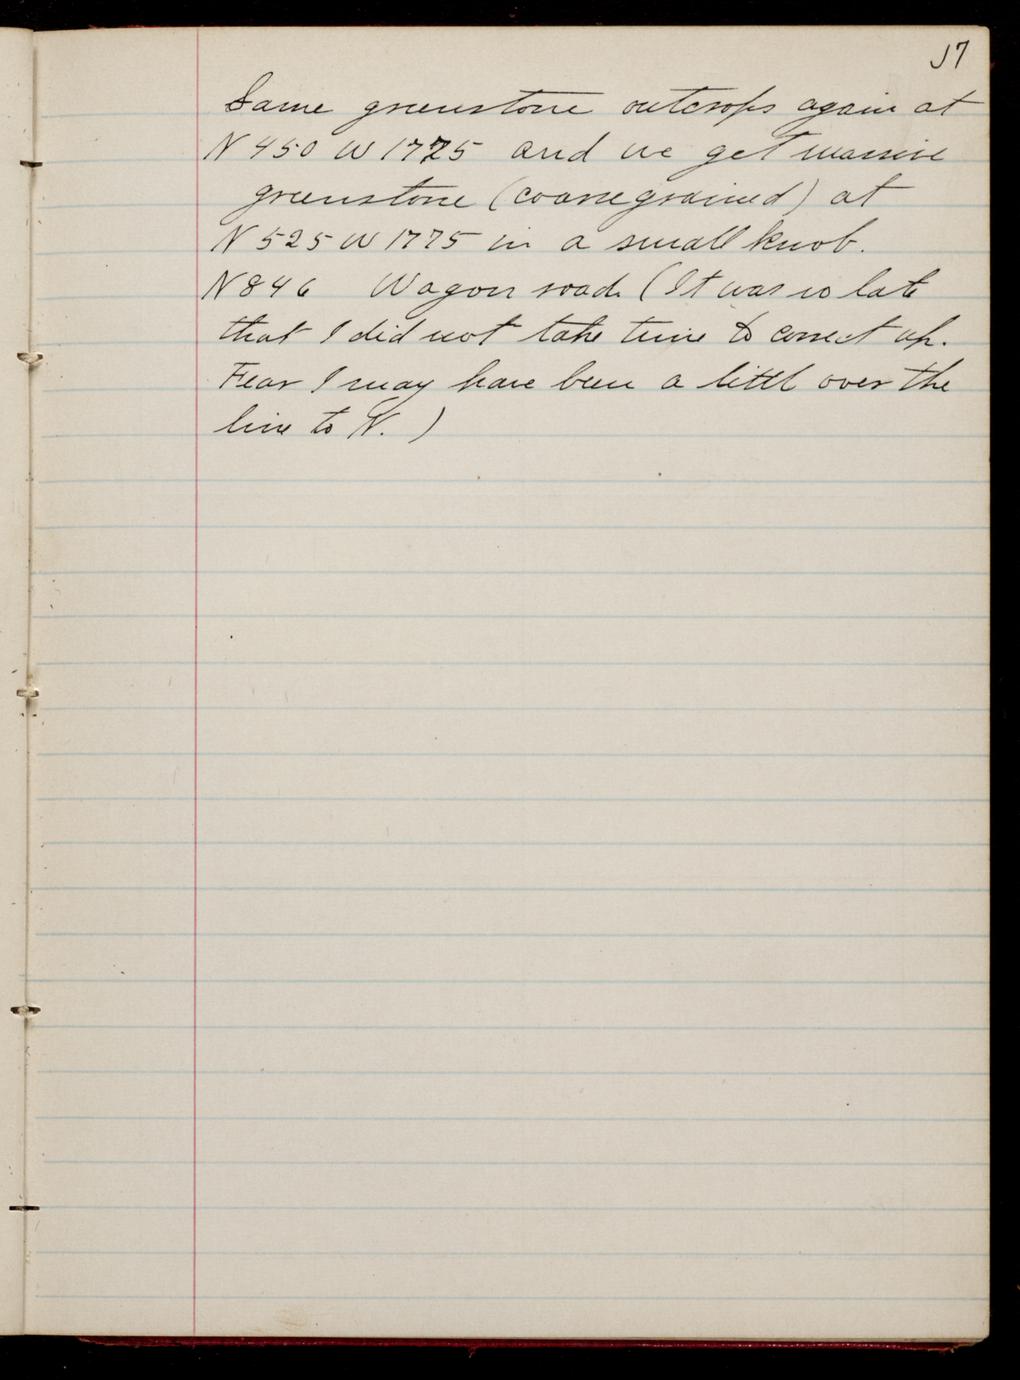 17
Same greenstone outcrops again at
N 450 W 1775 and we get massive
greenstone (coarsegrained) at
N 525 W 1775 in a small knob.
N 846 Wagon road. (It was so late
that I did not take time to correct up.
Fear I may have been a little over the
line to N. )